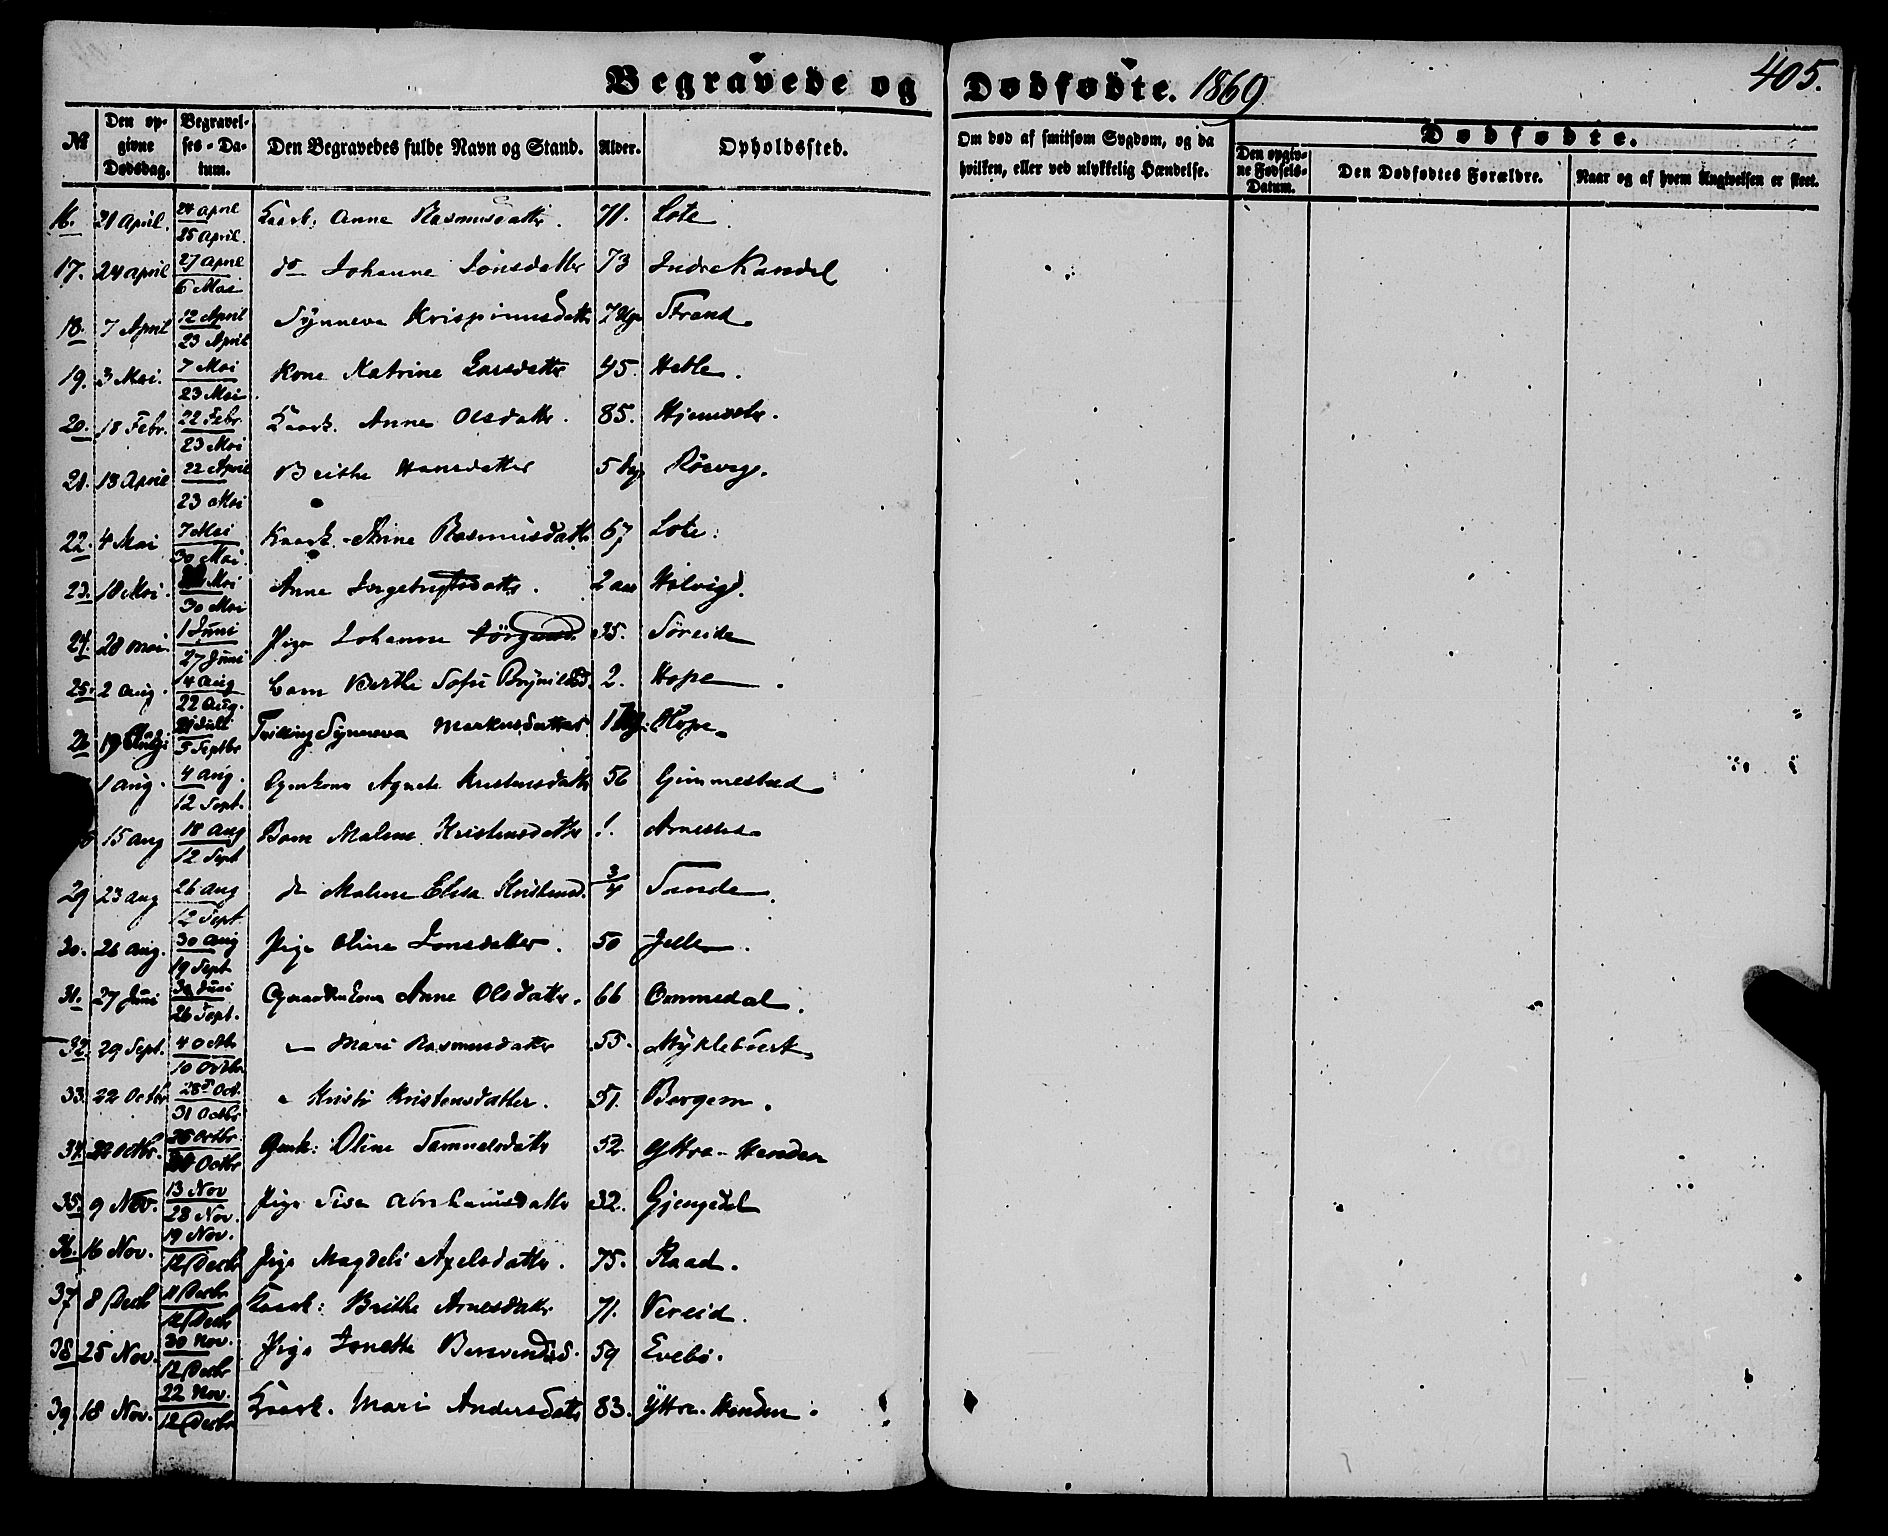 Begravede og Dødfødte. 1869
405.
№
Den opgivne Dødsdag.
Begravelses-Datum.
Den Begravedes fulde Navn og Stand.
Alder.
Opholdssted.
Om død af smitsom Sygdom, og da hvilken, eller ved ulykkelig Hændelse.
Dødfødte.
Den opgivne Fødsels-Datum.
Den Dødfødtes Forældre.
Naar og af hvem Angivelsen er skeet.
16. 21 April. 24 April 25 April. Kaark: Anne Rasmusdatter. 71. Lote
17. 24 April 27 April 6 Mai do Johanne Jonsdatter 73 Indre Handel
18. 7 April 12 April 23 April Synneva Krispinusdatter 7 Uger Strand.
19. 3 Mai. 7 Mai 23 Mai. Kone Katrine Larsdatter 45. Hetle.
20. 18 Febr. 22 Febr 23 Mai Kaark. Anne Olsdatter. 85.
21. 13 April 22 April 23 Mai Brithe Hansdatter 5
22. 4 Mai 7 Mai 30 Mai. Kaark. Anne Rasmusdatter 67 Lote.
23. 18 Mai. Mai 30 Mai Anne 2 aar
24. 28 Mai. 1 Juni 27 Juni Pige Johanne 35. Søreide
25. 2 Aug. 4 Aug 22 Aug. Barn Berthe Sofie 2. Hope.
26 19 Juli 5 Septbr Tvilling Synneva Markusdatter 1 Hope.
1 Aug. 4 Aug. 12 Sept. Agnete Kristensdatter 56 Gimmestad
15 Aug 18 Aug 12 Sept Barn Malene Kristensdatter 1. Arnestad
29 23 Aug 26 Aug 12 Sept. do Malene Elisa Kristensd. 3/4 Sande.
30. 26 Aug. 30 Aug 19 Sept Pige Oline Jonsdatter. 50
31. 27 Juni 30 Juni 26 Sept. Gaardmkone Anne Olsdatter. 66 Ommedal.
32. 29 Sept. 4 Octb 10 Octbr — Mari Rasmusdatter 55. Myklebust.
33. 22 Octbr 28 Oct. 31 Octbr " Kristi Kristensdatter. 51. Bergem.
34. 22 Octbr. Octbr. Octbr Gmk: Oline Samuelsdatter 52 Yttre-Henden
35. 9 Nov. 13 Nov 28 Nov. Pige Sisa Abrahamsdatter 32. Gjengedal
36. 16 Nov. 19 Nov. 12 Decbr Pige Magdeli Axelsdatter. 75. Raad.
37 8 Decb 11 Decbr 12 Decb Kaark: Brithe Arnesdatter 71. Vereid.
38 25 Nov. 30 Nov. 12 Decbr Pige Jonette 59 Evebø.
39. 18 Nov. 22 Nov. 12 Decbr Kaark. Mari Andersdatter 83. Yttre-Henden.